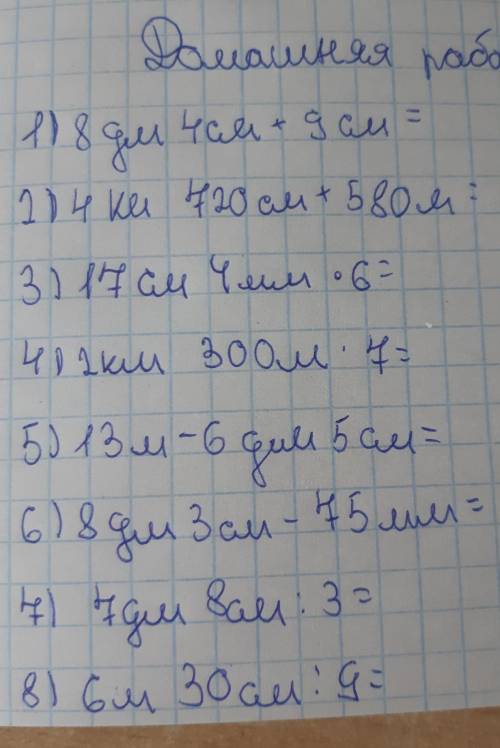 Домашняя рабо
1) 8 дм 4см + 9 см =
2) 4 км 720см + 580м =
3) 17 см 4мм · 6=
4) 2км 300м · 7=
5) 13м - 6 дм 5 см=
6) 8 дм 3см - 75мм=
7) 7дм 8см : 3=
8) 6м 30см : 9=